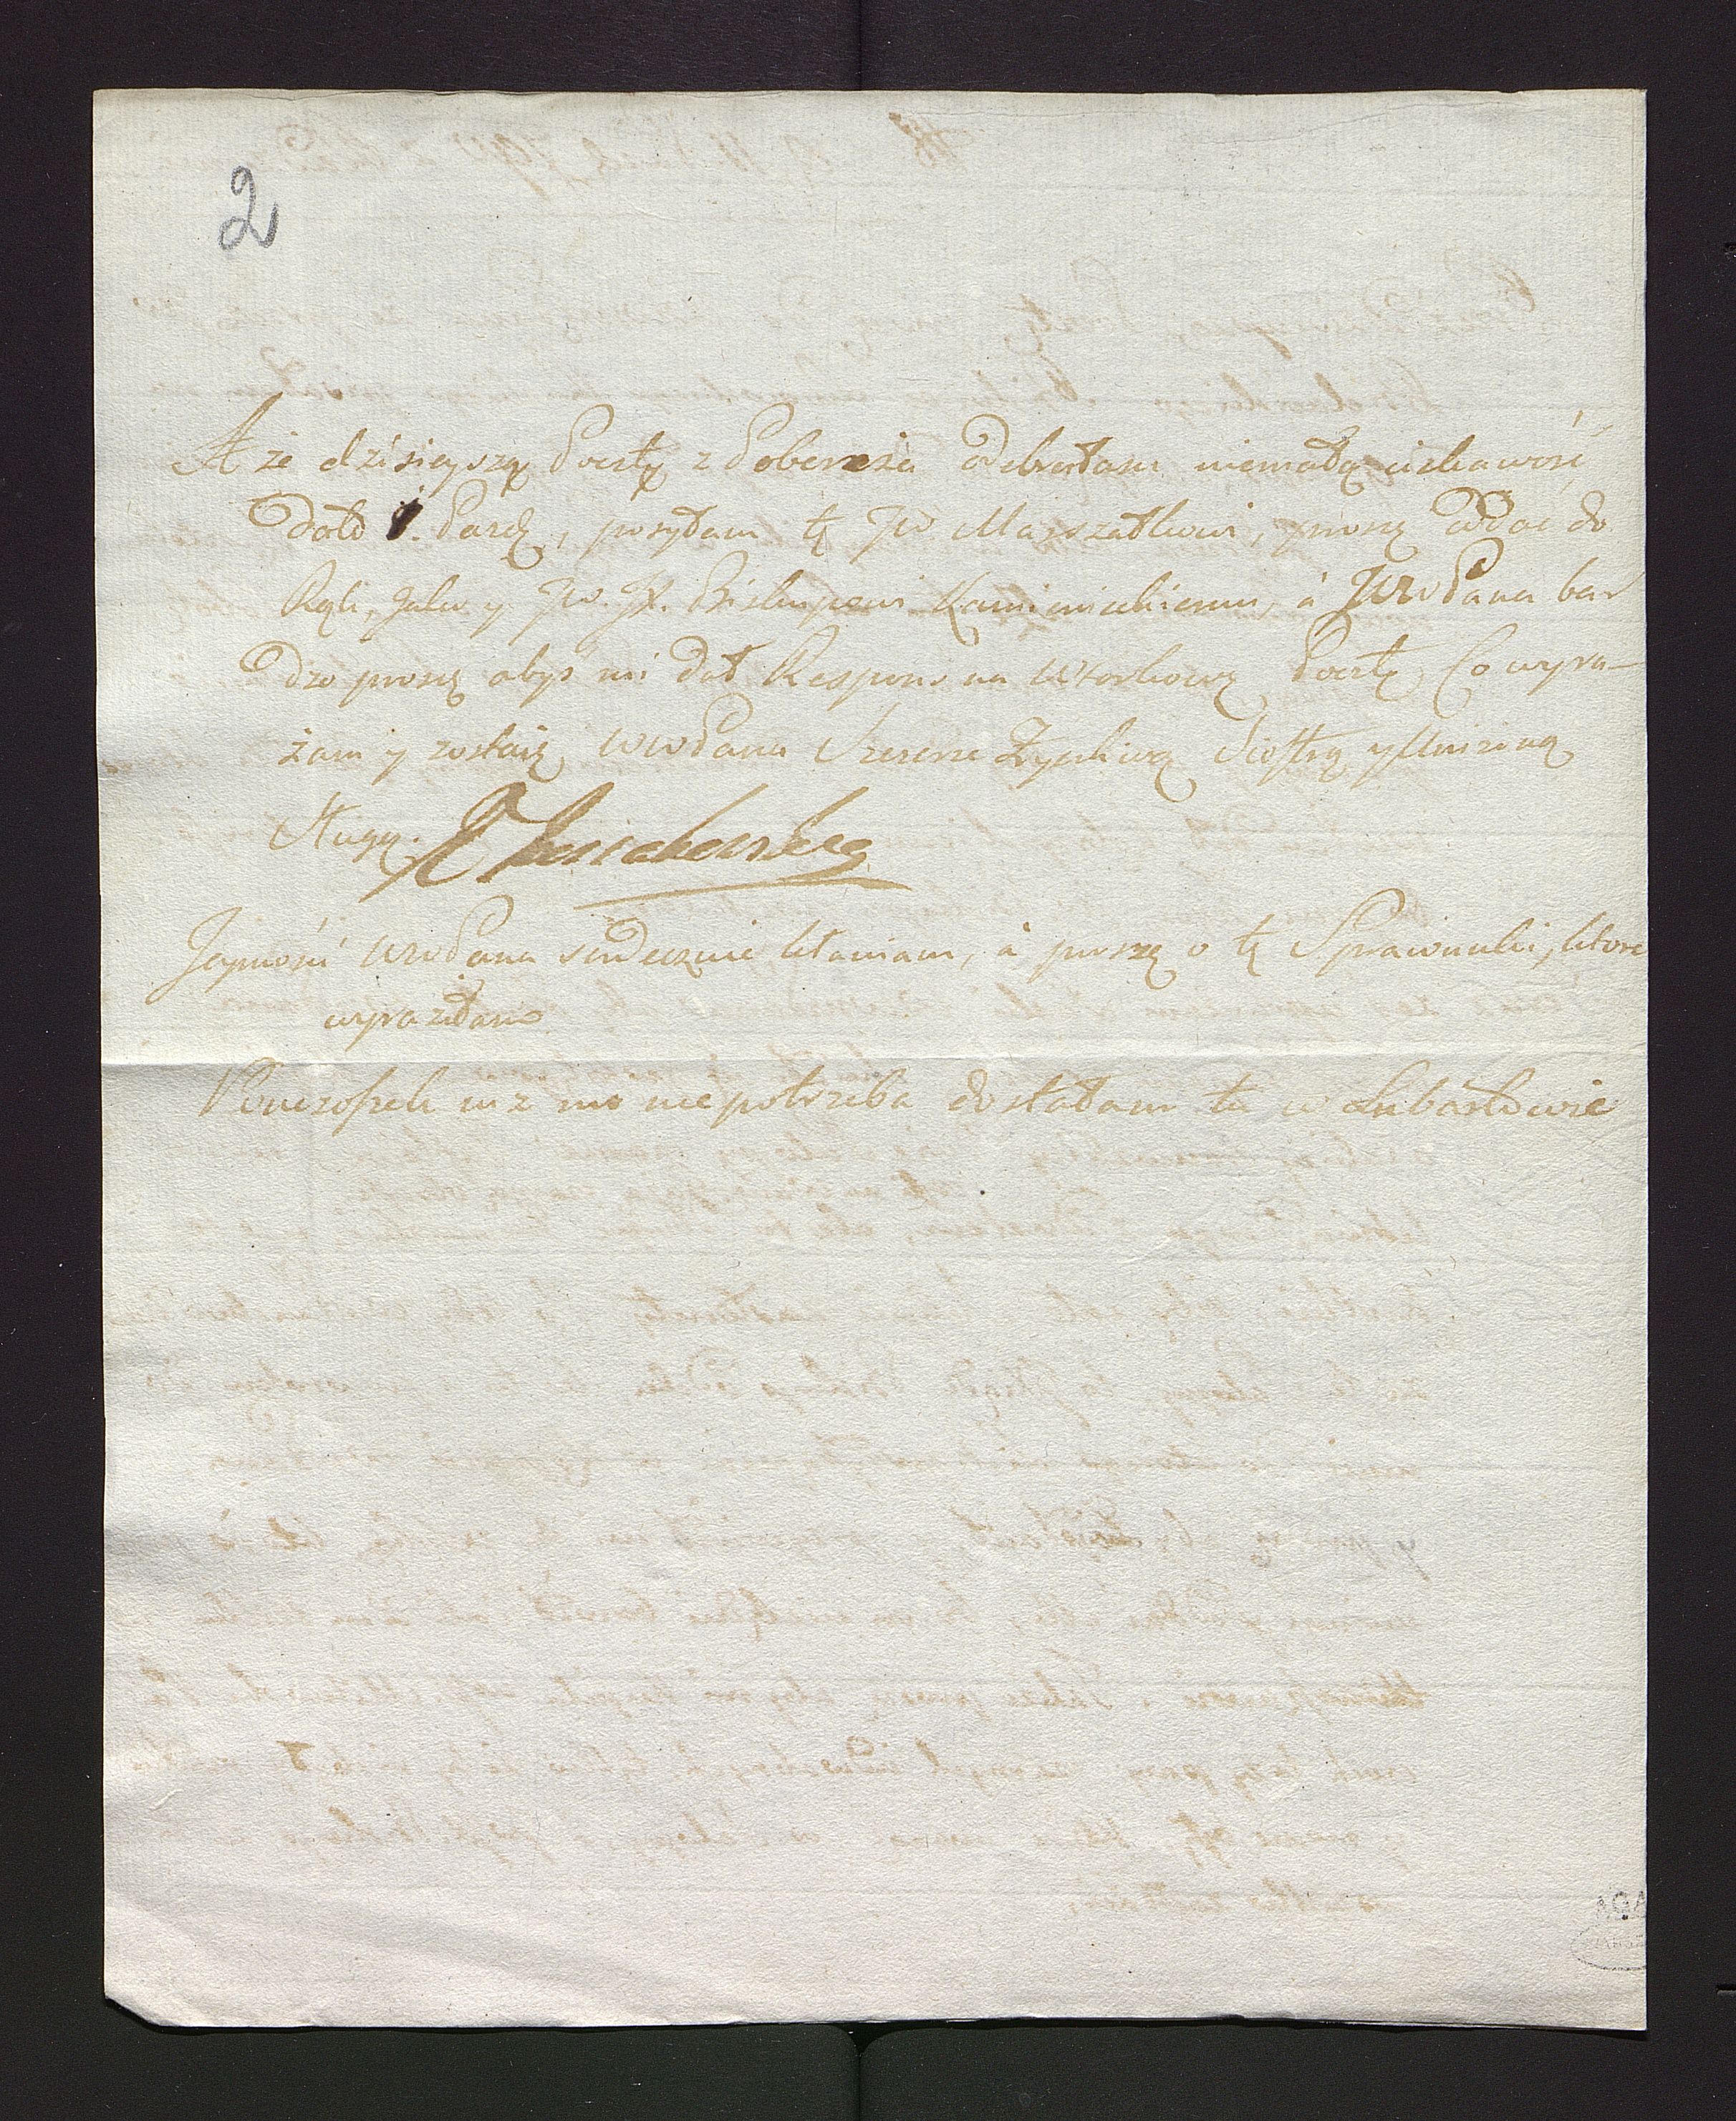 2
A że dzisieyszą Pocztą z Pobereża Odebrałam niemałą ciekawość,
Dało Parę, posyłam tę JW Marszałkowi, proszę oddać do
Rąk, Jako y JW. JX. Biskupowi Kamienieckiemu, à JWWPana bar
dzo proszę abyś mi dał Respons na Wtorkową Pocztę Co wyra-
żam y zostaię WWPana Szczerze Życzliwą Siostrą y Uniżoną
Sługą.
Jeymość WWPana serdecznie kłaniam, à proszę o tę Sprawunki, które
wyraziłam
Pończoszek już mi nie potrzeba dostałam tu w Lubartowie